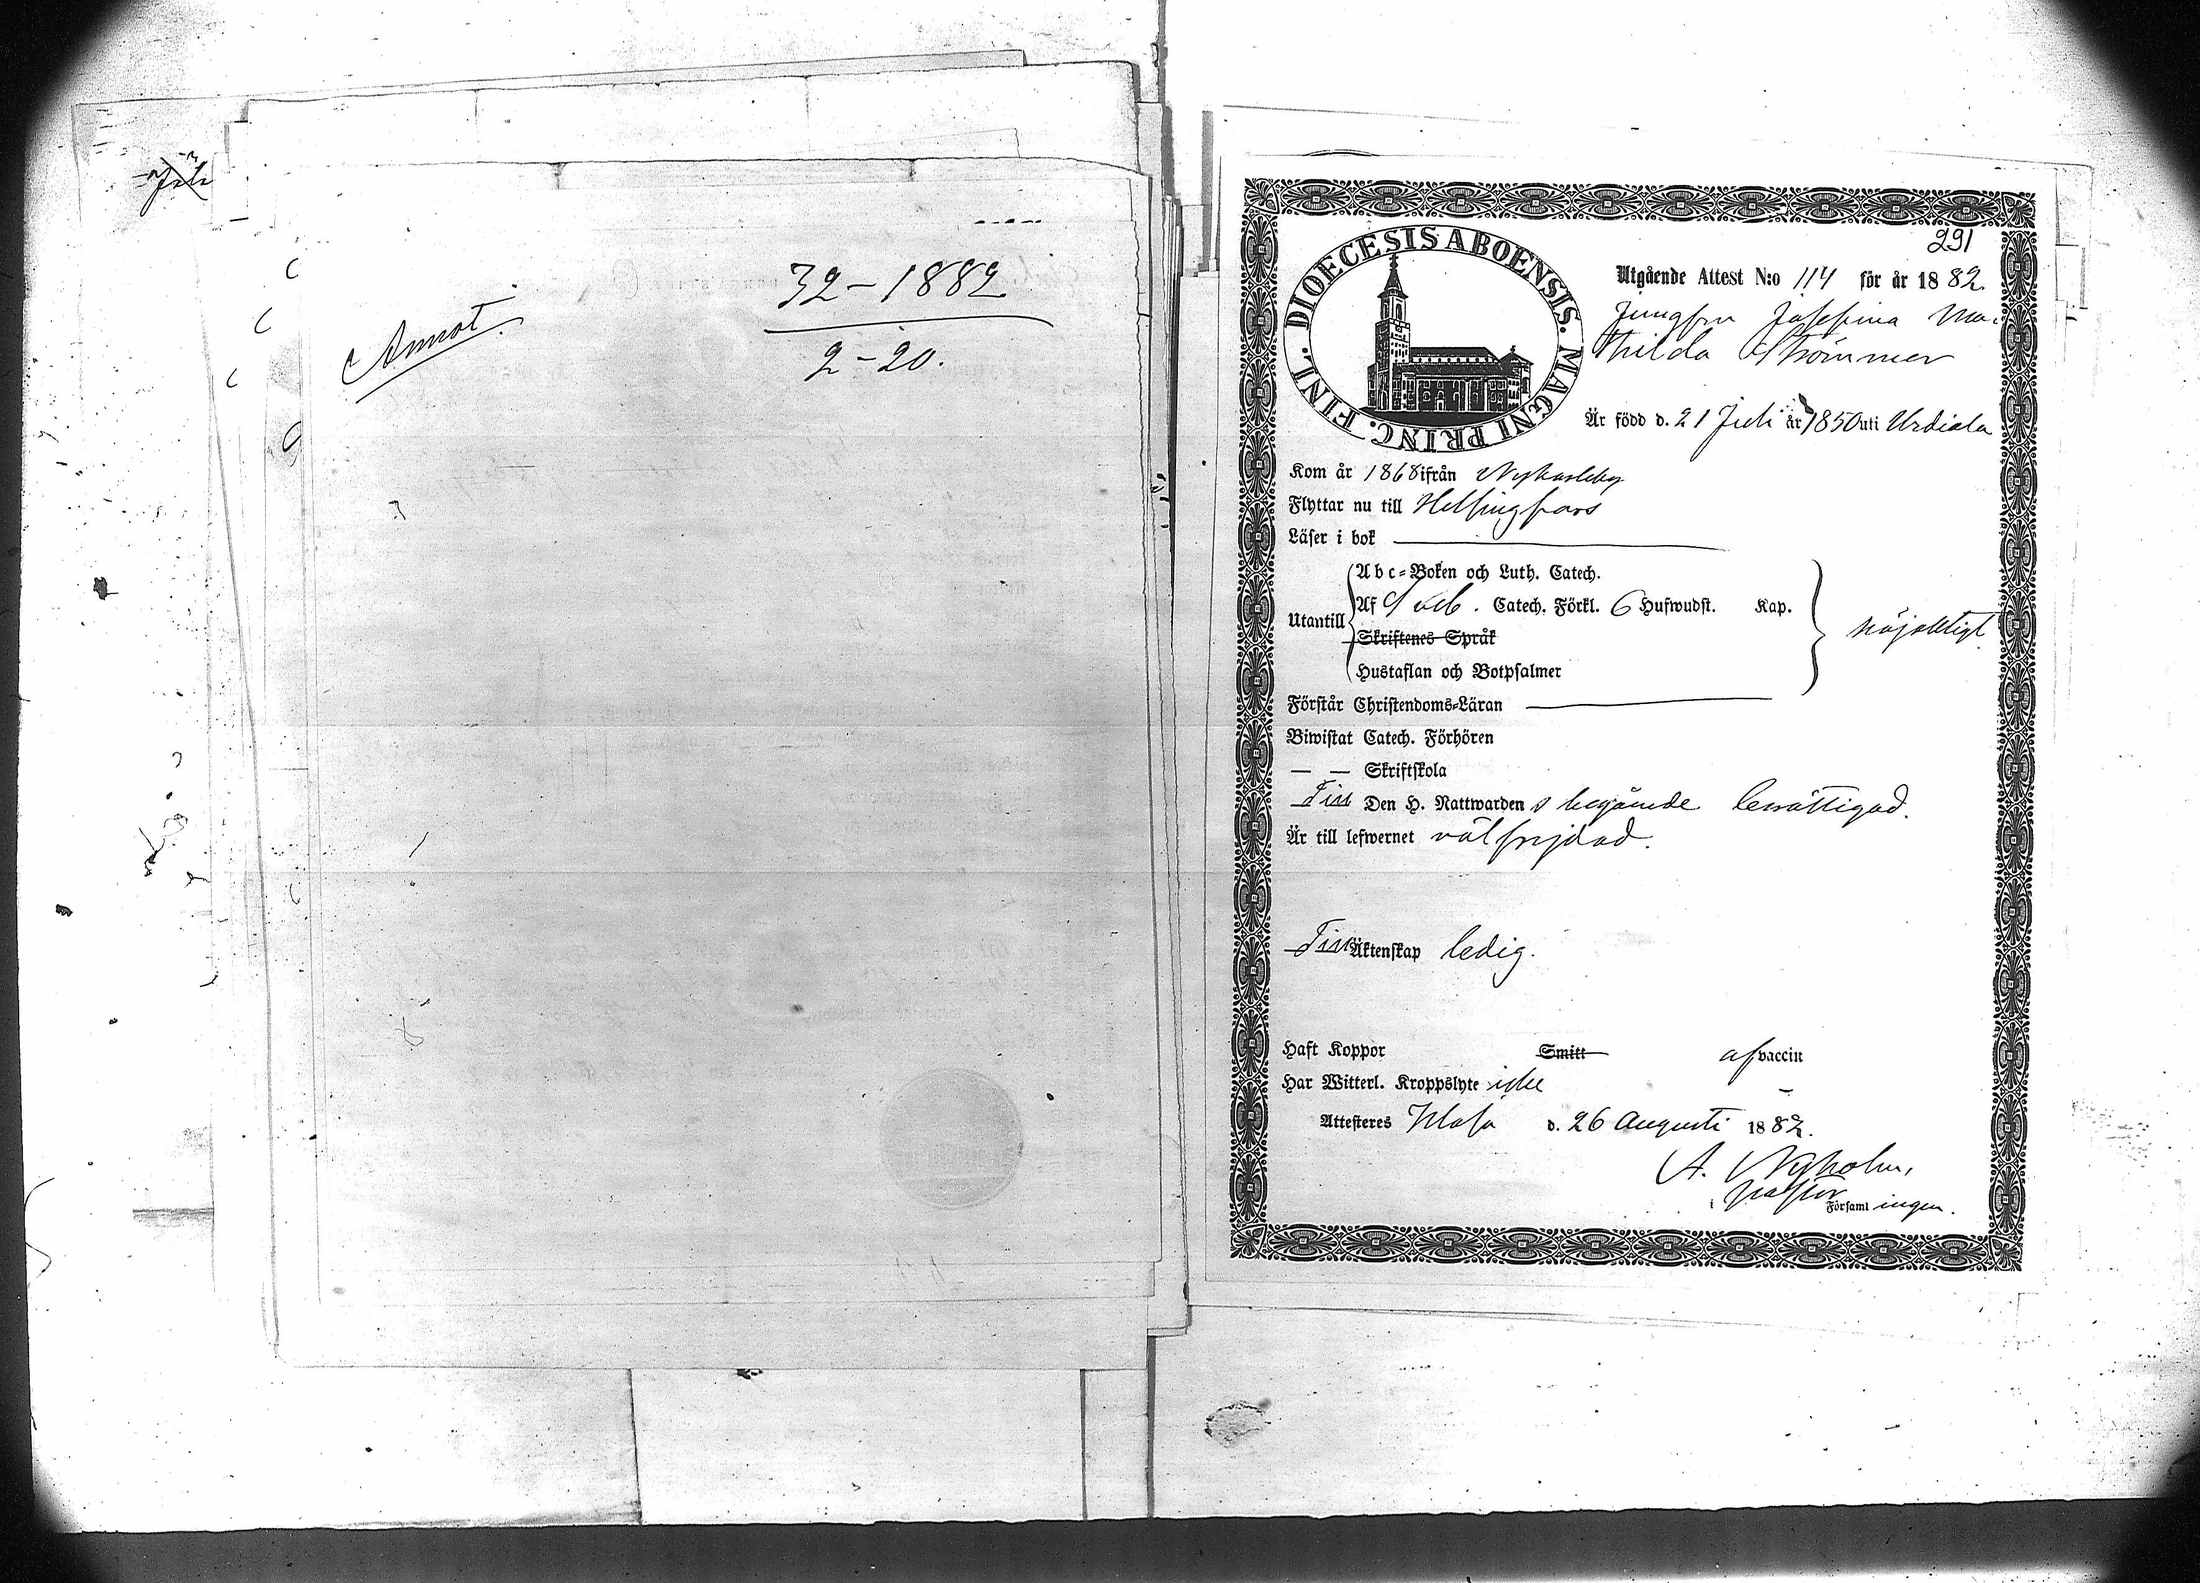 32-1882
2-20.
Annot.
291
DIOECESIS ABOENSIS. MAGNI PRINC. FINL.
Utgående Attest N:o 114 för år 1882.
Jungfru Josefina Ma-
thilda Strömmer
Är född d. 21 Juli år 1850 uti Urdiala
Kom år 1868 ifrån Nykarleby
Flyttar nu till Helsingfors
Läser i bok
Abc-Boken och Luth. Catech.
Utantill Af Sveb. Catech. Förkl. 6 Hufwudst. Kap. nöjaktigt
Skriftenes Språk
Hustaflan och Botpsalmer
Förstår Christendoms-Läran
Biwistat Catech. Förhören
— — Skriftskola
Till Den H. Nattwarden s begående berättigad.
Är till lefwernet välfrejdad.
Till Äktenskap ledig.
Haft Koppor Smitt af vaccin
Har Witterl. Kroppslyte icke
Attesteres Wasa d. 26 Augusti 1882.
A. Nyholm,
pastor
i Församlingen.